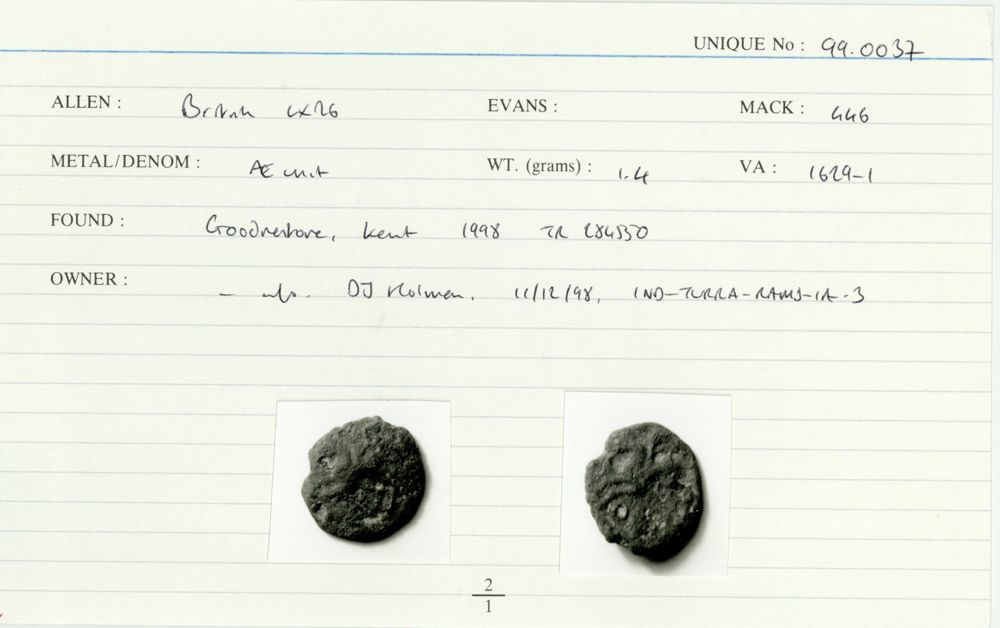 UNIQUE No : 99.0037
ALLEN : British LX26 EVANS : MACK : 446
METAL/DENOM : Æ unit WT. (grams) : 1.4 VA : 1629-1
FOUND : Goodnestone, Kent 1998 TR 284550
OWNER : – info. DJ Holman, 11/12/98, IND-TURRA-RAMS-IA-3
2
1